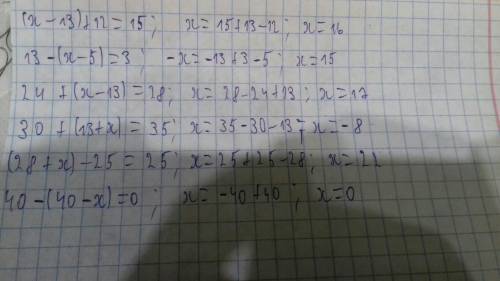 (x-13)+12=15; x=15+13-12; x=16
13-(x-5)=3; -x=-13+3-5; x=15
24+(x-13)=28; x=28-24+13; x=17
30+(13+x)=35; x=35-30-13; x=-8
(28+x)-25=25; x=25+25-28; x=22
40-(40-x)=0; x=-40+40; x=0